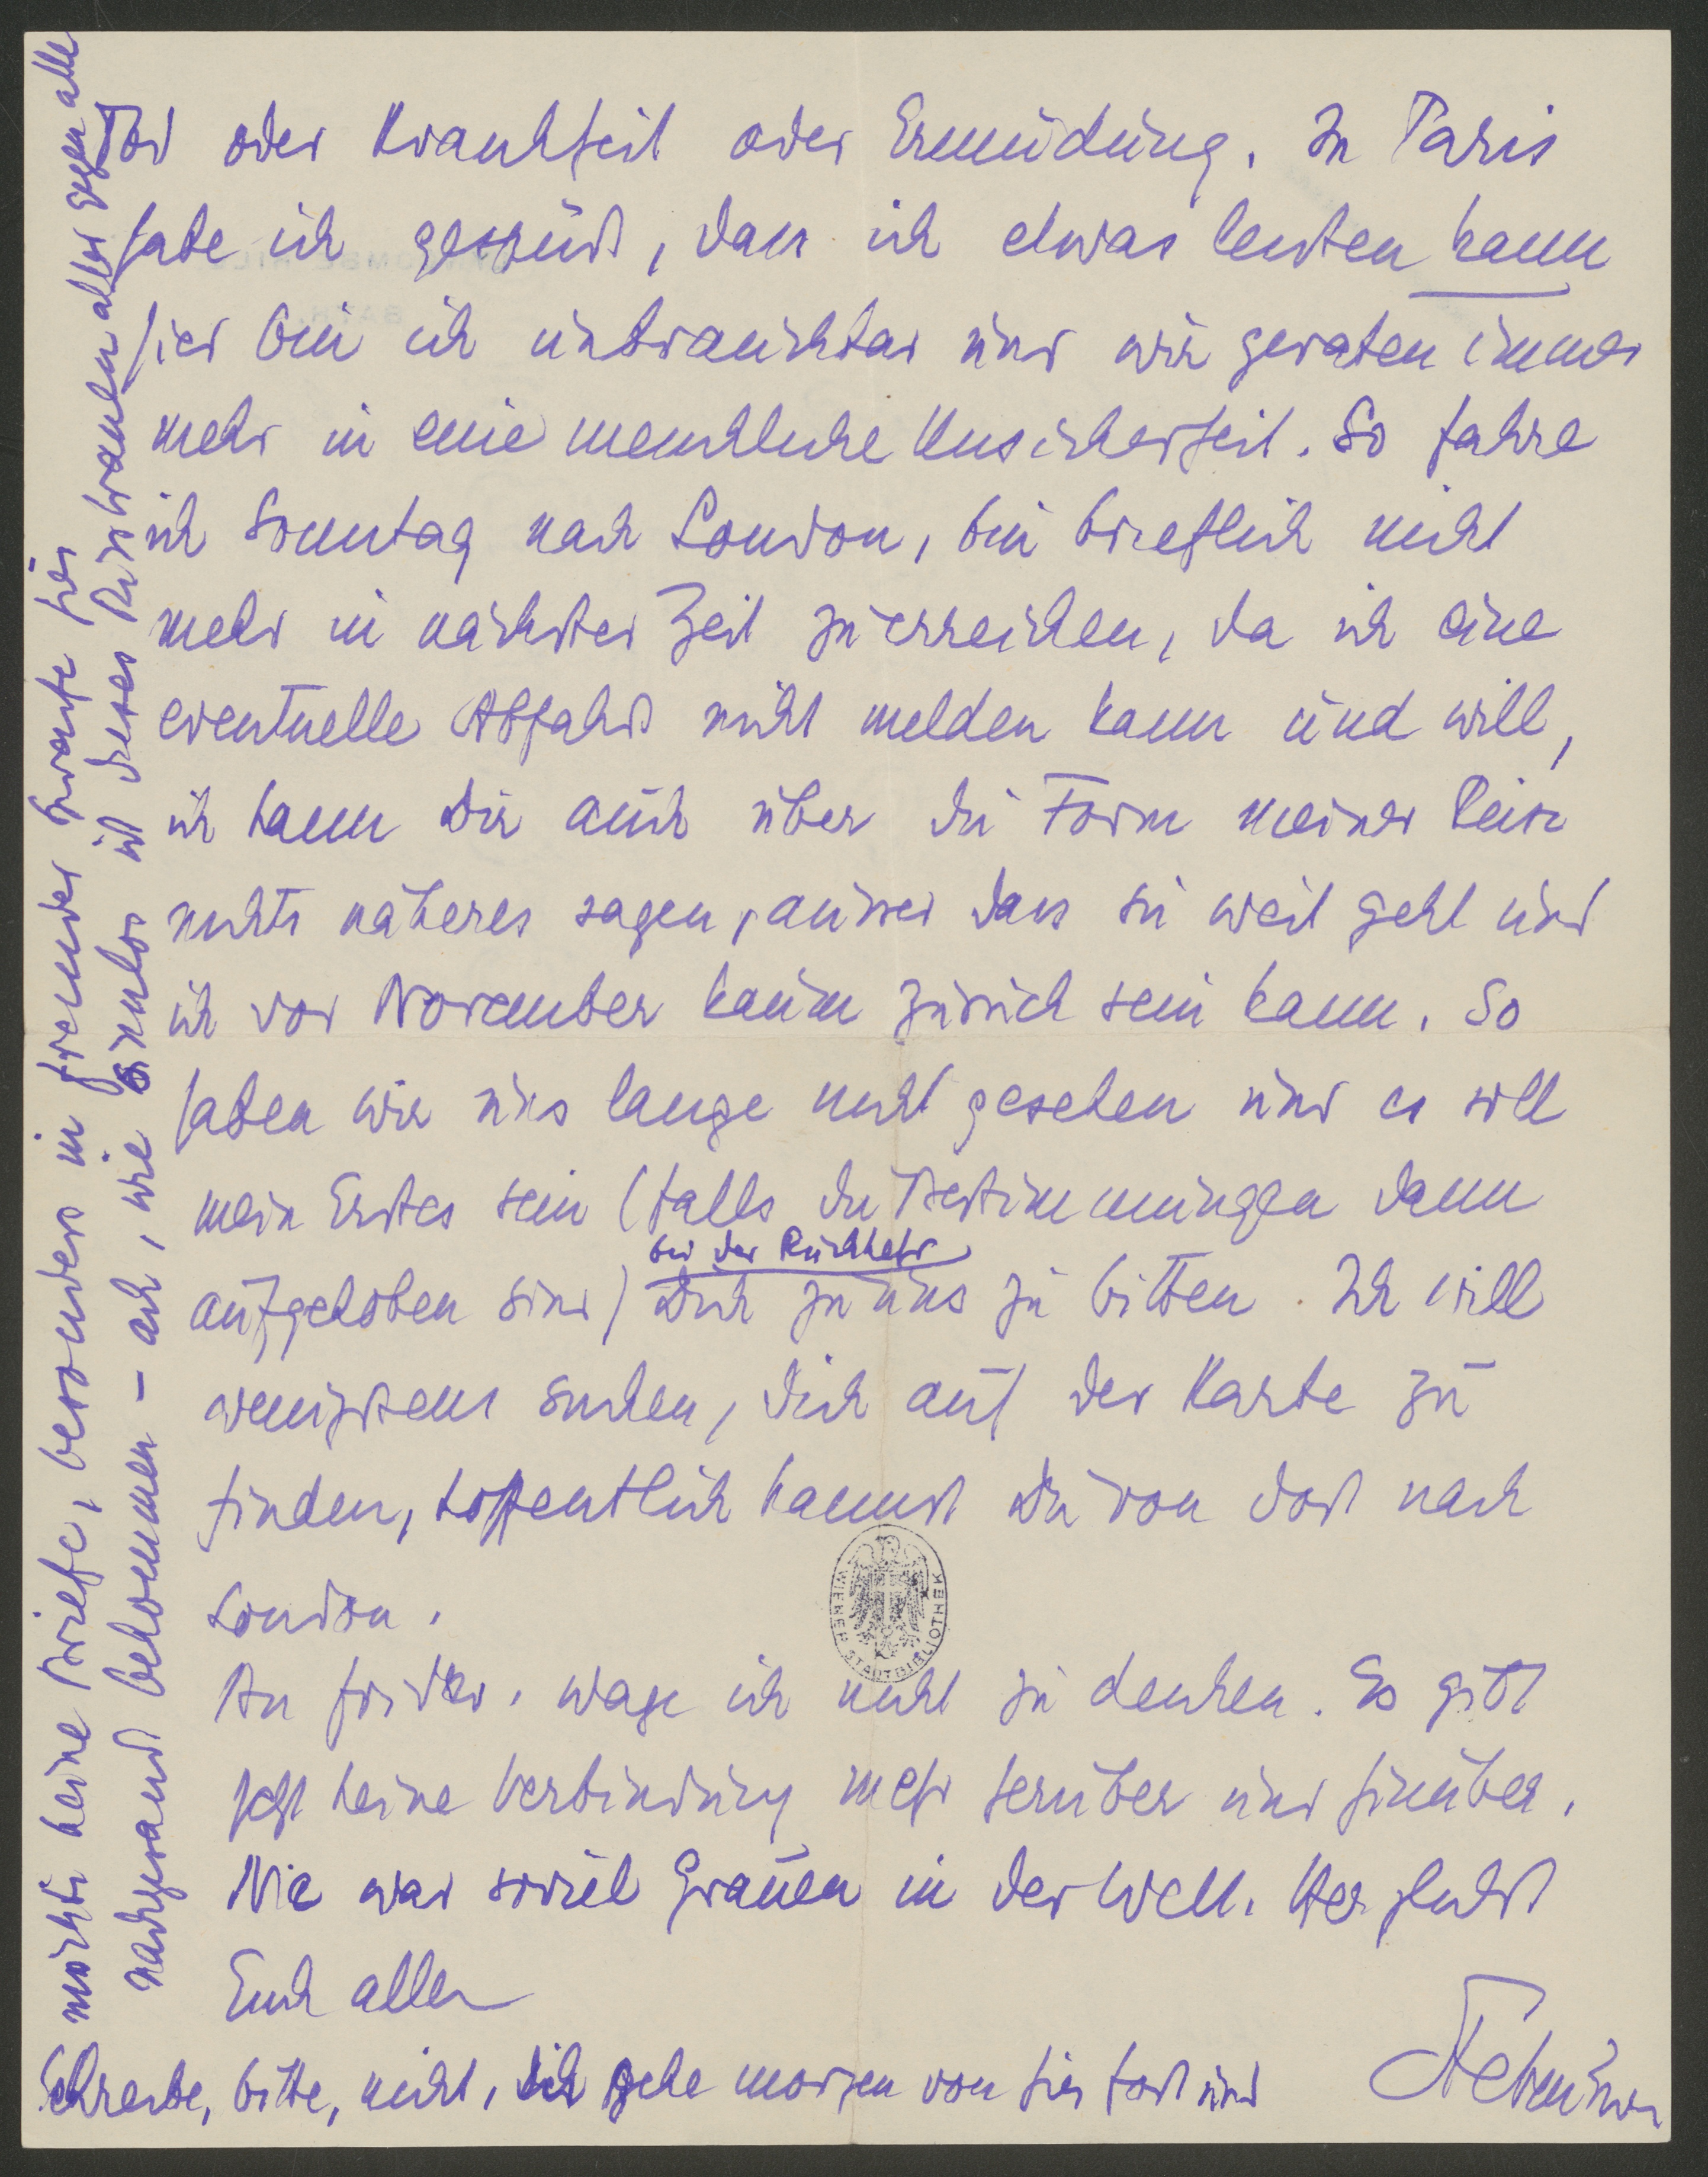 Tod oder Krankheit oder Ermüdung. In Paris
habe ich gespürt, dass ich etwas leisten kann
hier bin ich unbrauchbar und wir geraten immer
mehr in eine menschliche Unsicherheit. So fahre
ich Sonntag nach London, bin brieflich nicht
mehr in nächster Zeit zu erreichen, da ich eine
eventuelle Abfahrt nicht melden kann und will,
ich kann Dir auch über die Form meiner Reise
nichts näheres sagen, ausser dass sie weit geht und
ich vor November kaum zurück sein kann. So
haben wir uns lange nicht gesehen und es soll
mein Erstes sein (falls die Bestimmungen dann
bei der Rückkehr
aufgehoben sind) Dich zu uns zu bitten. Ich will
wenigstens suchen, Dich auf der Karte zu
finden, hoffentlich kannst Du von dort nach
London.
An wage ich nicht zu denken. Es gibt
jetzt keine Verbindung mehr herüber und hinüber.
Nie war soviel Grauen in der Welt. Herzlichst
Euch allen
Schreibe, bitte, nicht, ich gehe morgen von hier fort und
möchte keine Briefe, besonders in fremder Sprache hier
nachgesandt bekommen - ach, wie sinnlos ist dieses Misstrauen aller gegen alle
WIENER STADTBIBLIOTHEK
BATH.